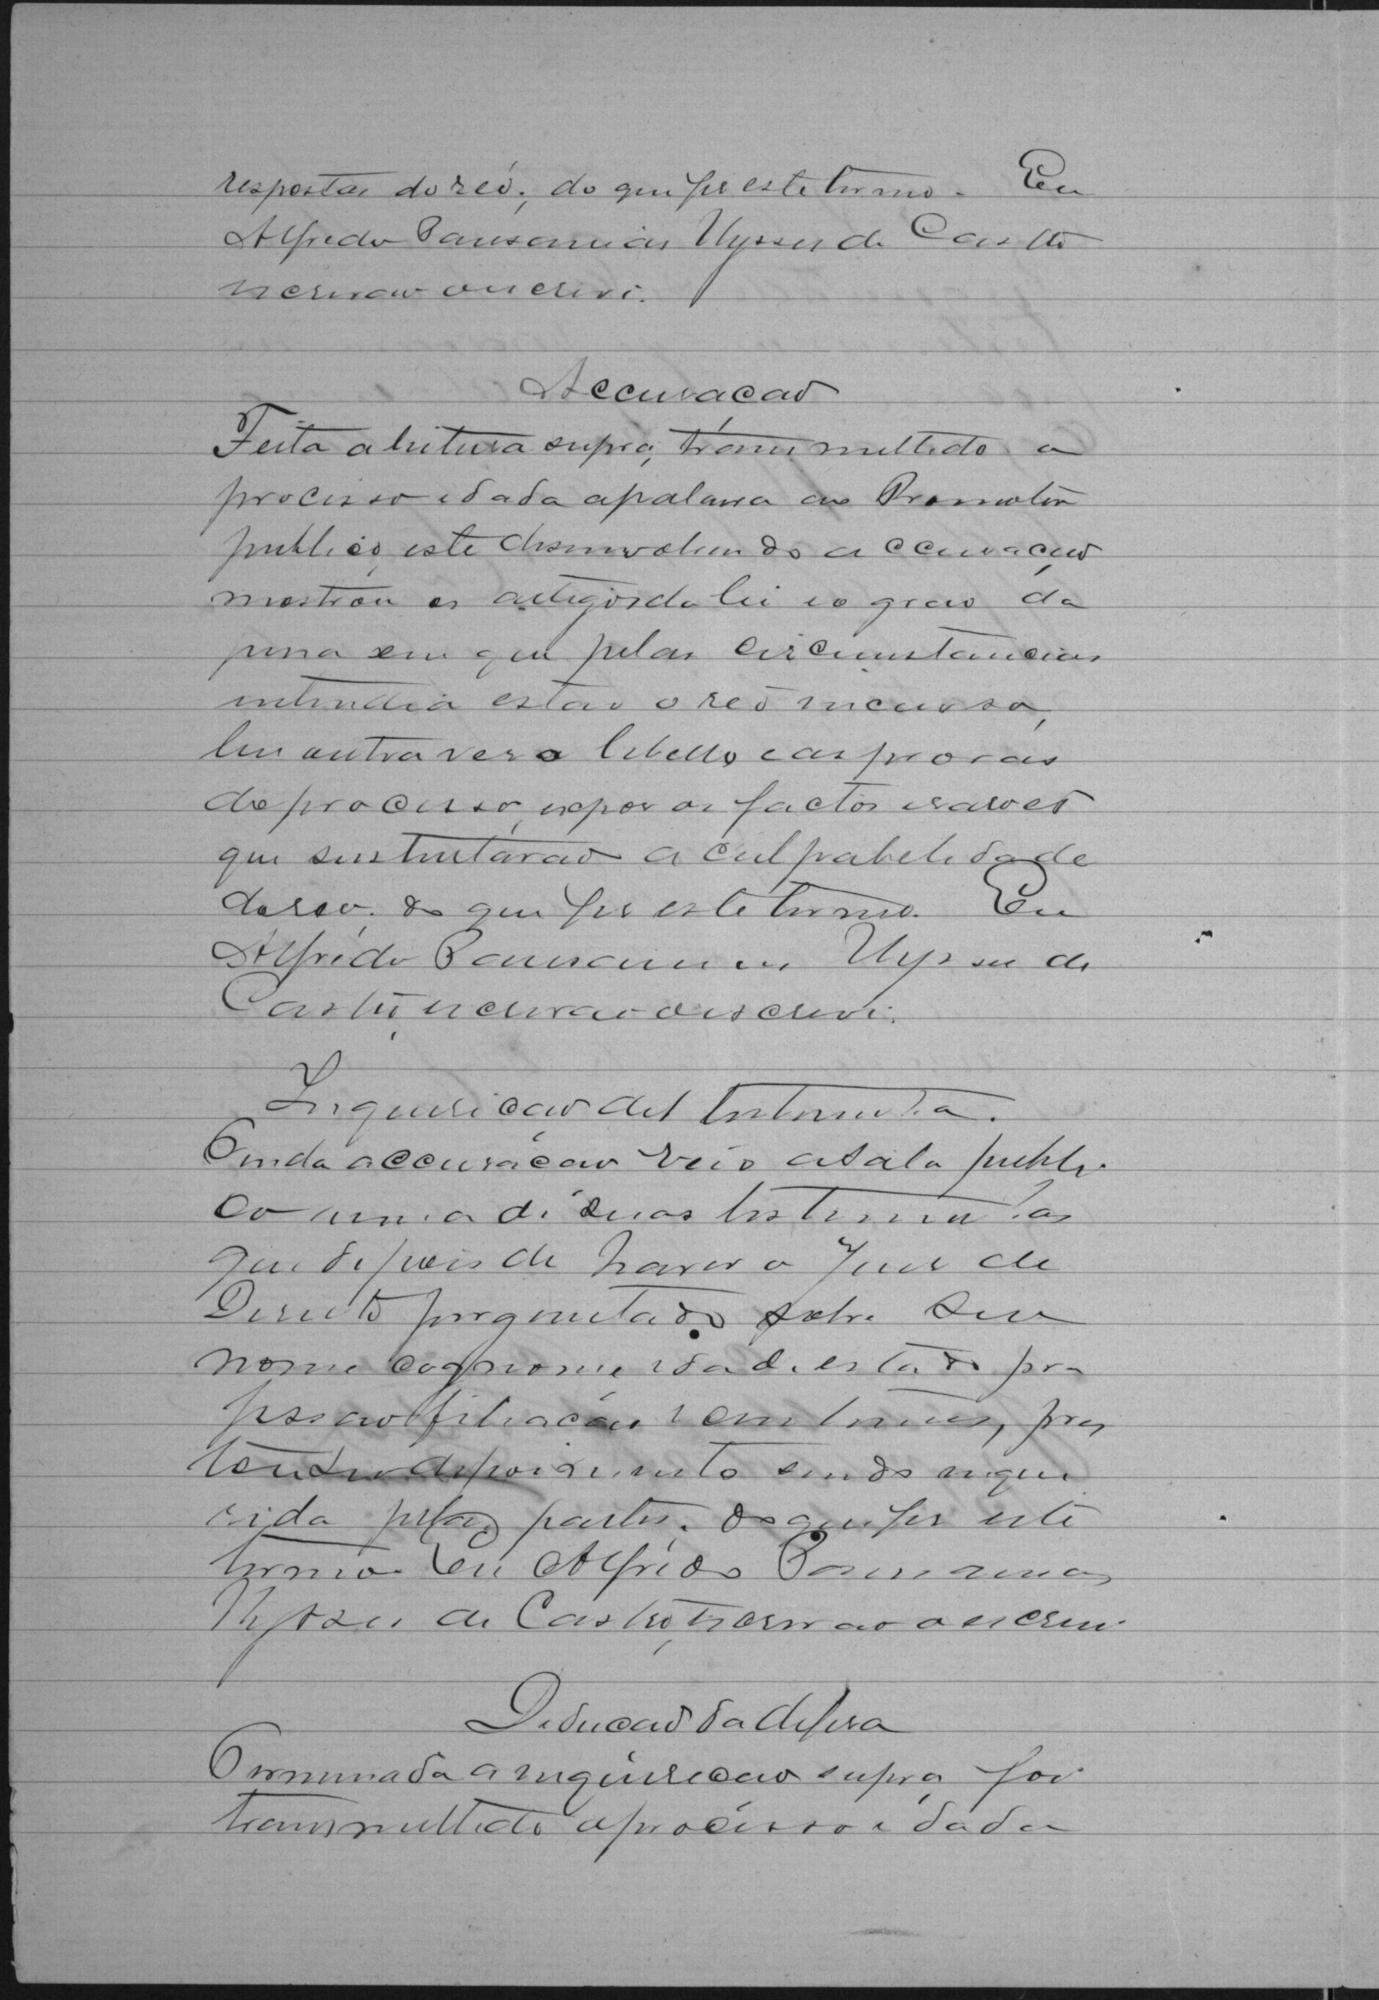 respostas do réo; do que fis este termo. Eu
Alfredo Pausanias Ulysses de Castro
escrivão o escrevi.
Accusação
Feita a leitura supra, transmittido o
processo e dada a palavra ao Promotor
publico, este desenvolvendo a accusação
mostrou os artigos da lei e o grao da
pena em que pelas circumstancias
intendia estar o reo incurso,
leu outra vez o libello e as provas
do processo, expos os factos e rasoes
que sustentarão a culpabelidade
do reo. do que fis este termo. Eu
Alfredo Pausanias Ulysses de
Castro, escrivão o escrevi.
Inquirição de testemunha.
Finda a accusação veio a sala publi
ca uma de suas testemunhas
que depois de haver o Juis de
Direito perguntado sobre seu
nome cognome idade estado pro
fissão filiação e custumes, pres
tou seu depoimento sendo inque
rida pelas partes. do que fis este
termo. Eu Alfredo Pausanias
Ulysses de Castro, escrivão o escrevi.
Deducção da defesa
Terminada a inquirição supra, foi
transmittido o processo e dada